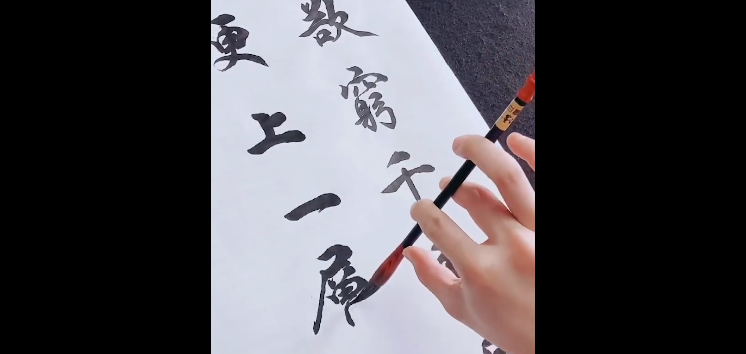 欲窮千
更上一層